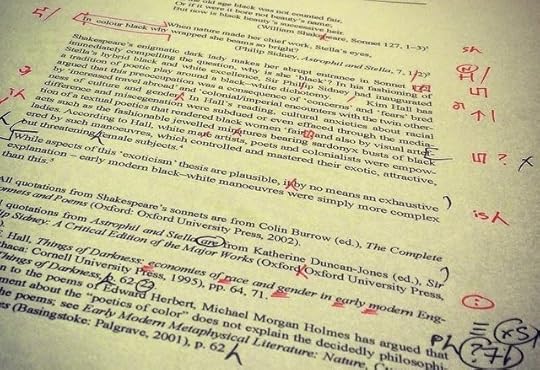 old age black was not counted fair,
Or if it were it bore not beauty's name;
But now is black beauty's successive heir.
(William Shakespeare, Sonnet 127, 1–3)
In colour black why
When nature made her chief work, Stella's eyes,
wrapped she beams so bright?
(Philip Sidney, Astrophil and Stella, 7. 1/2)
Shakespeare's enigmatic dark lady makes her abrupt entrance in Sonnet
immediately compelling the question, why is she 'black'? In his fashioning of
Stella's hybrid black and white excellence, Sir Philip Sidney had inaugurated
a tradition of poetic play around a black–white dichotomy. Kim Hall has
argued that this preoccupation was a consequence of 'fears' bred
by 'increased travel abroad' and colonial/imperial encounters with the twin other-
ness of culture and gender. In Hall's reading, cultural or even racial
difference and miscegenation were evaded or even effaced through the media-
tion of a textual poetics that rendered black women 'fair' and also by visual arte-
facts such as the fashionable miniatures bearing sardonyx busts of black
ladies. According to Hall, white artists, poets and colonialists were empow-
ered by such manoeuvres, which controlled and mastered their exotic, attractive,
but threatening female subjects.
While aspects of this 'exoticism' thesis are plausible, by no means an exhaustive
explanation – early modern black–white manoeuvres were simply more complex
than this.
All quotations from Shakespeare's sonnets are from Colin Burrow (ed.), The Complete
Sonnets and Poems (Oxford: Oxford University Press, 2002).
quotations from Astrophil and Stella are from Katherine Duncan-Jones (ed.), Sir
Philip Sidney: A Critical Edition of the Major Works (Oxford Oxford University Press,
Hall, Things of Darkness: economies of race and gender in early modern Eng-
Ithaca: Cornell University Press, 1995), pp. 64, 71.
Things of Darkness, p. 62
n to the poems of Edward Herbert, Michael Morgan Holmes has argued that
ment about the "poetics of color" does not explain the decidedly philosophi-
he poems; see Early Modern Metaphysical Literature: Nature,
es (Basingstoke: Palgrave, 2001), p. 62